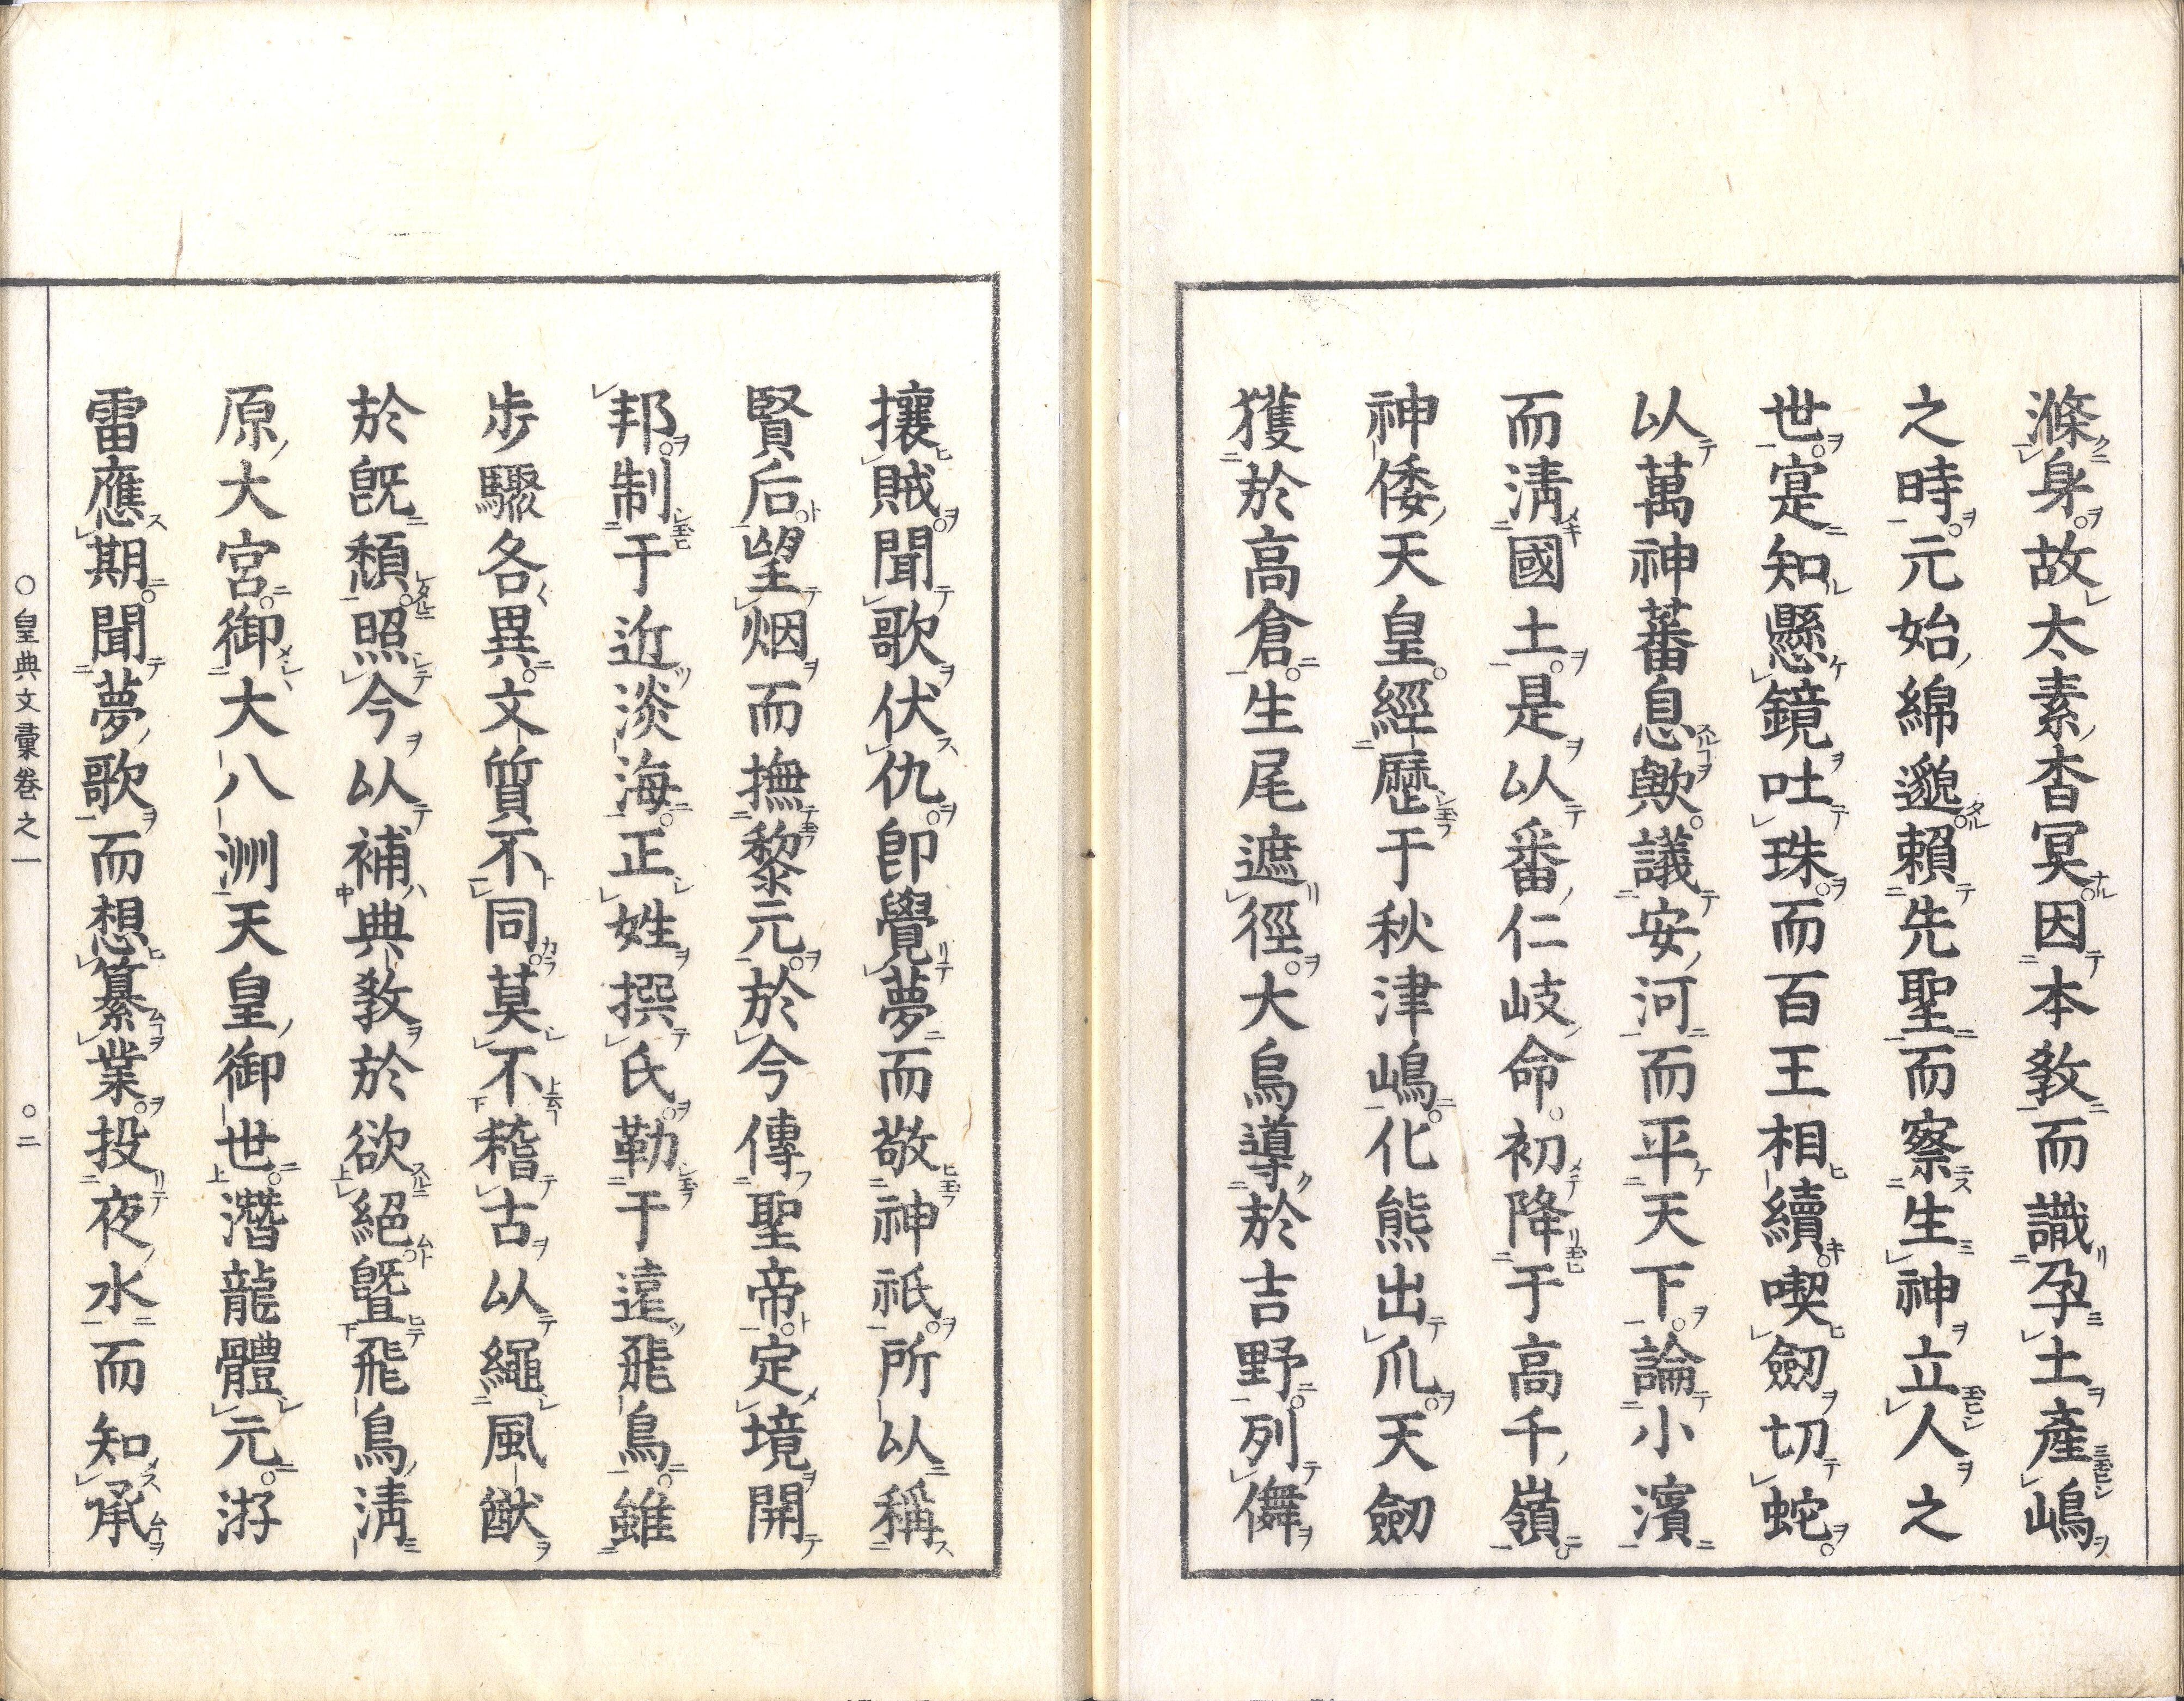 滌身故太素杳冥因本教而識孕土產嶋
之時元始綿邈賴先聖而察生神立人之
世寔知懸鏡吐珠而百王相續喫劒切蛇
以萬神蕃息歟議安河而平天下論小濱
而淸國土是以番仁岐命初降于高千嶺
神倭天皇經歷于秋津嶋化熊出爪天劒
獲於高倉生尾遮徑大烏導於吉野列儛
攘賊聞歌伏仇卽覺夢而敬神祇所以稱
賢后望烟而撫黎元於今傳聖帝定境開
邦制于近淡海正姓撰氏勒于遠飛鳥雖
步驟各異文質不同莫不稽古以繩風猷
於旣頹照今以補典敎於欲絕曁飛鳥淸
原大宮御大八洲天皇御世潛龍體元游
雷應期聞夢歌而想纂業投夜水而知承
○皇典文彙卷之一 ○二